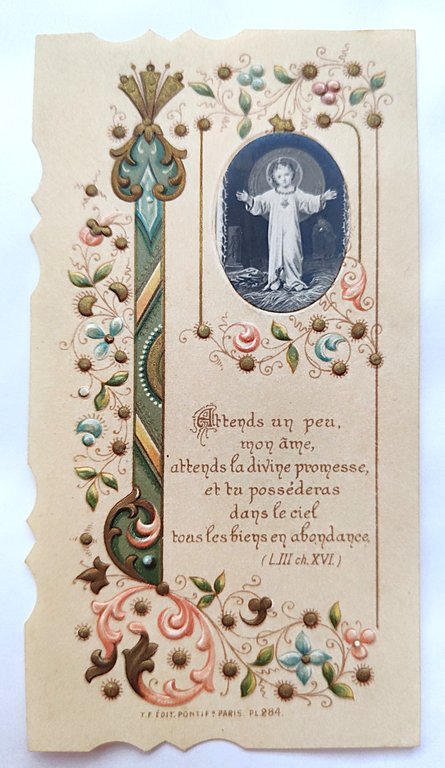 Attends un peu,
mon âme,
attends la divine promesse,
et tu posséderas
dans le ciel
tous les biens en abondance.
(L.III ch. XVI.)
T.F. ÉDIT. PONTIF. PARIS. PL 284.